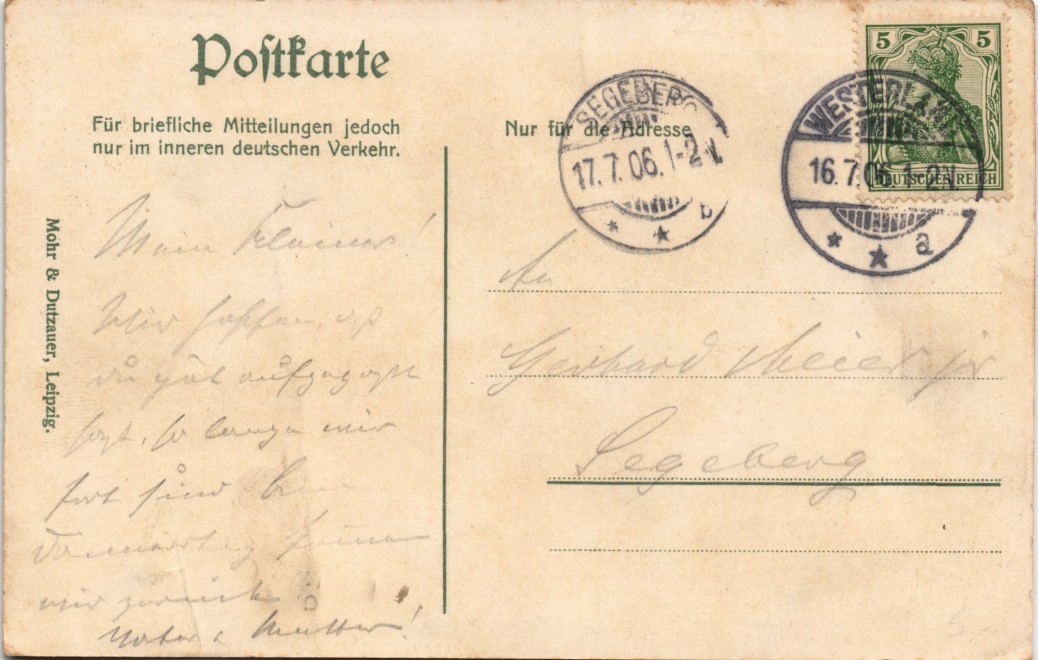 Postkarte
Für briefliche Mitteilungen jedoch
nur im inneren deutschen Verkehr.
Nur für die Adresse
SEGEBERG
17.7.06.1-2N.
b
WESTERLAND
16.7.06.1-2N.
a
5 5
DEUTSCHES REICH
Mohr & Dutzauer, Leipzig.
Mein Kleiner!
Wir hoffen,
du gut aufgepaßt
hast, so lange wir
fort sind.
Donnerstag kommen
wir zurück.
Vater & Mutter!
An
Gerhard Meier jr
Segeberg